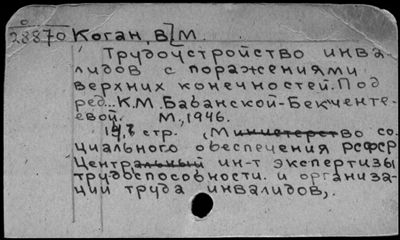 28870 Коган, В. М.
Трудоустройство инва-
лидов с поражениями
верхних конечностей. Под
ред. К.М. Бабанской-Бекченте-
евой. М., 1946.
стр. (Министерство со-
циального обеспечения РСФСР
Центральный ин-т экспертизы
трудоспособности и организа-
ции труда инвалидов,